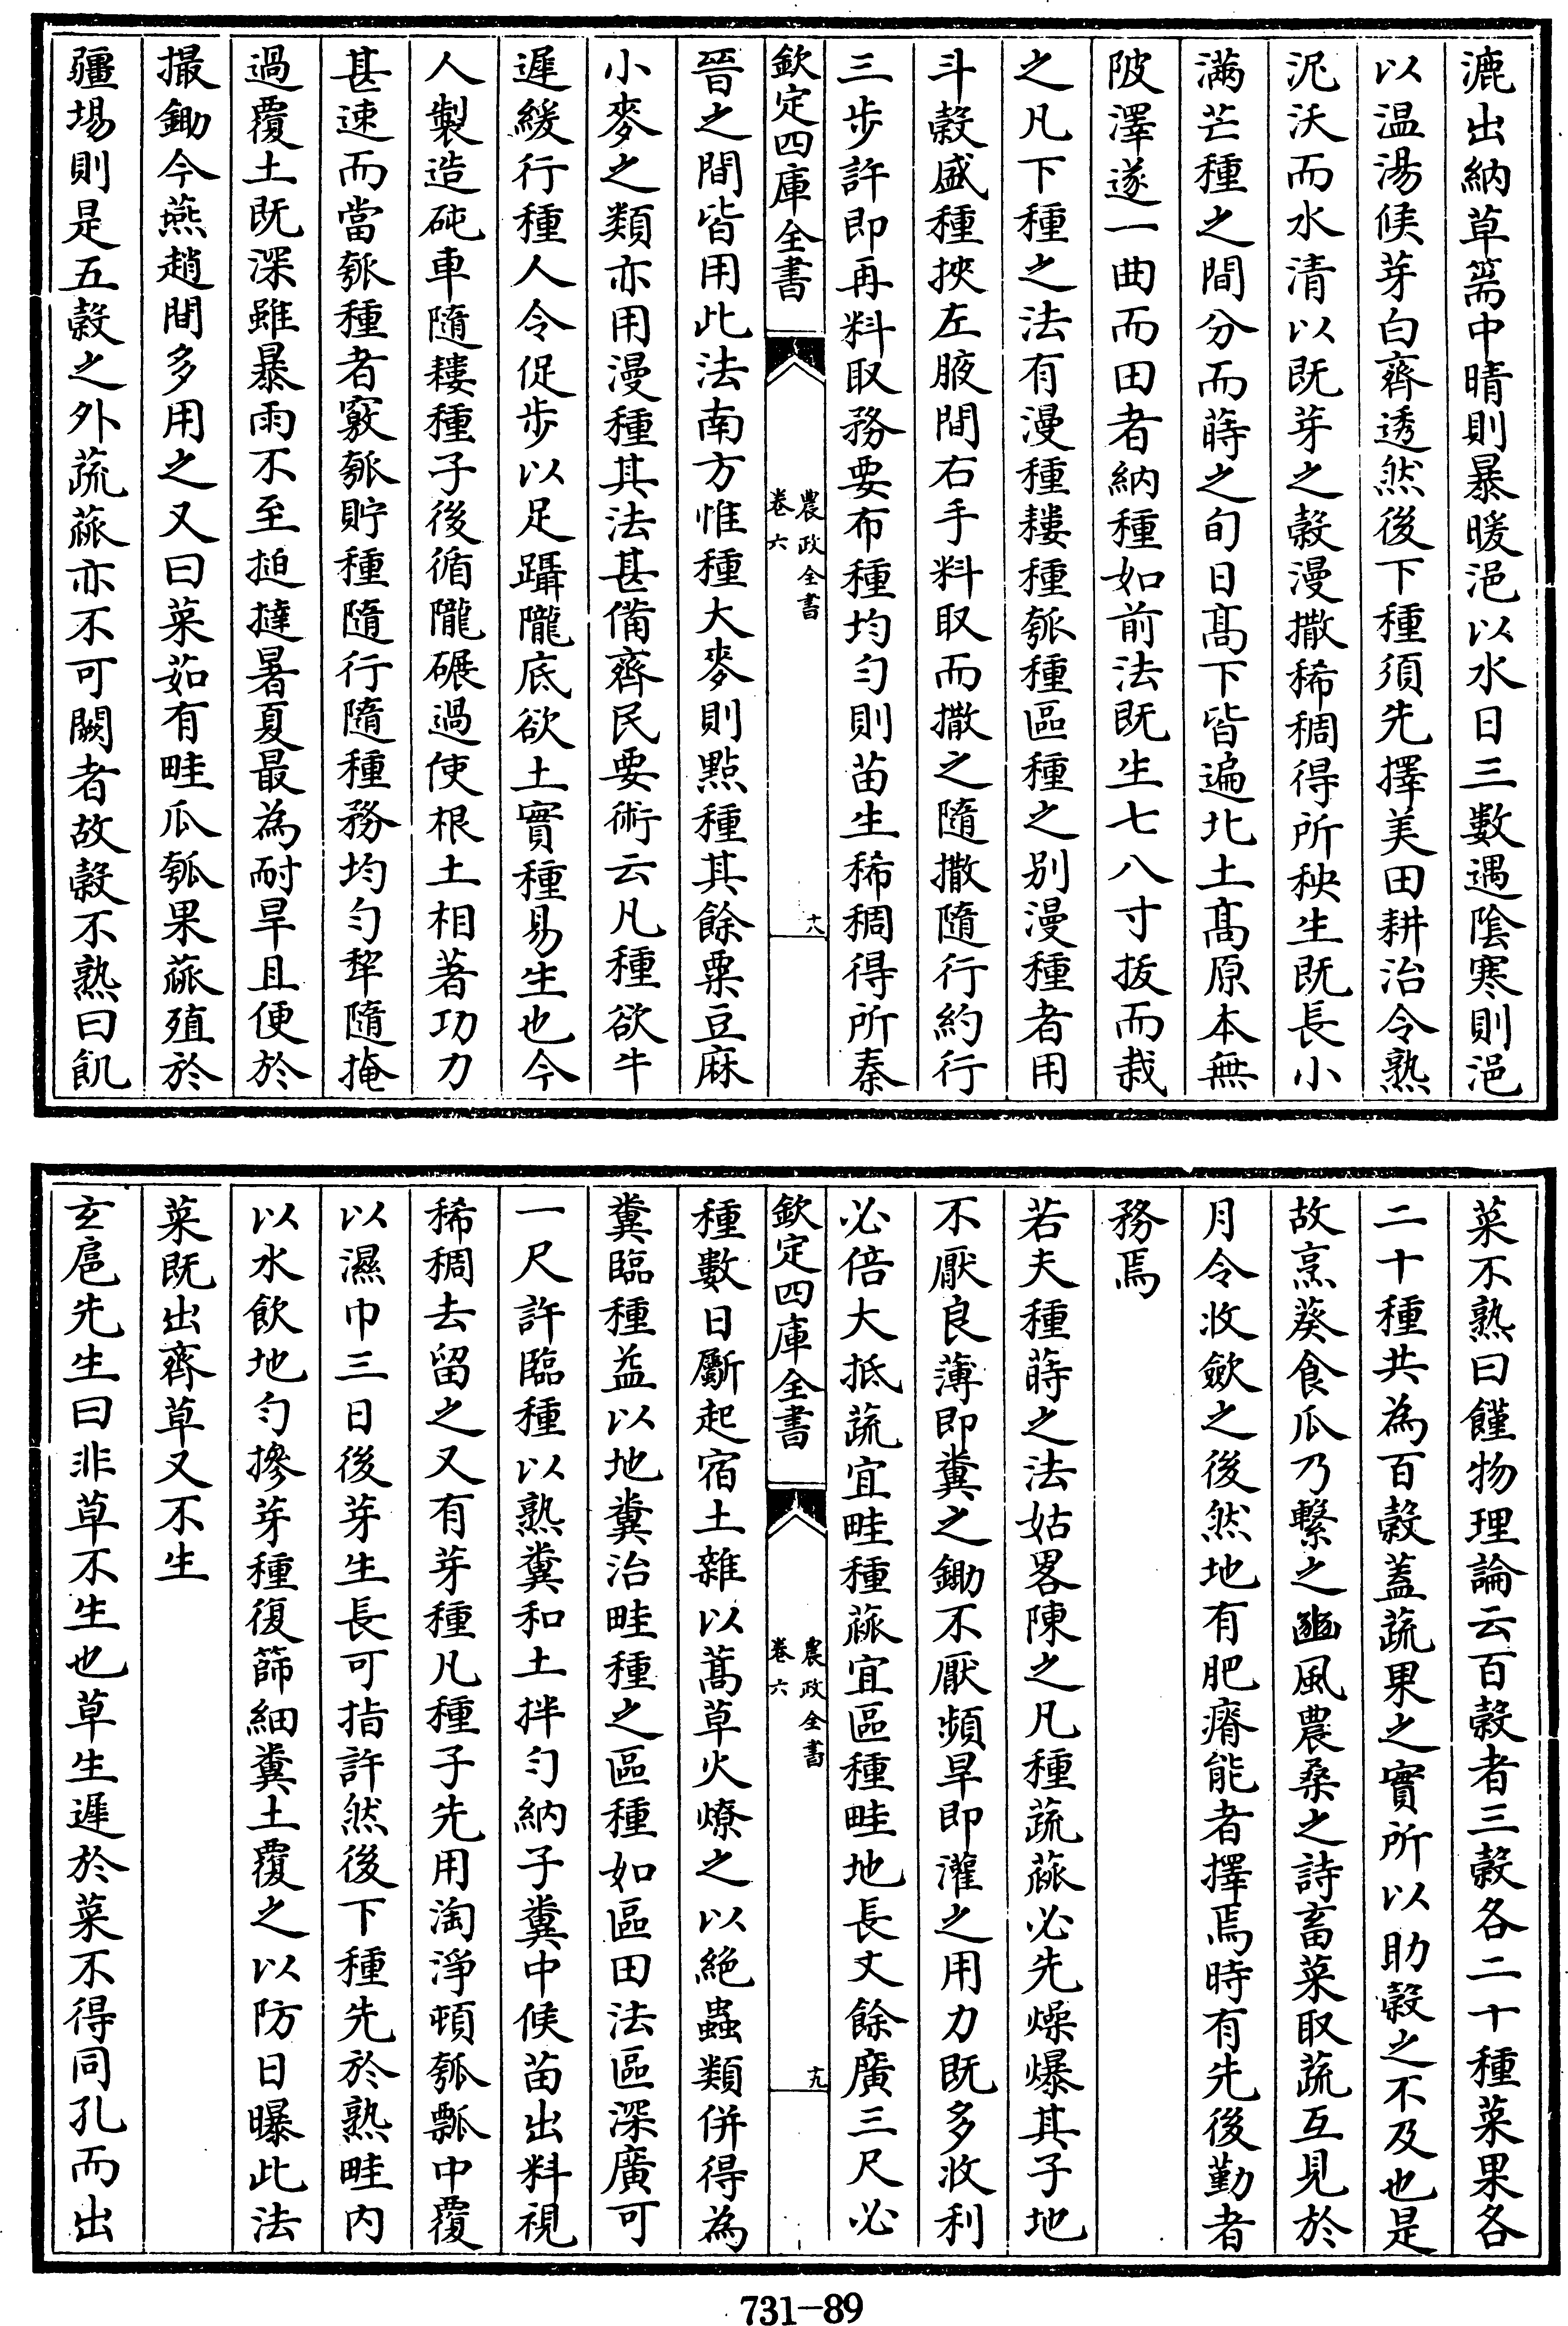 漉出納草篅中晴則暴暖浥以水日三數遇陰寒則浥
以温湯候芽白齊透然後下種須先擇美田耕治令熟
泥沃而水清以既芽之穀漫撒稀稠得所秧生既長小
滿芒種之間分而蒔之旬日髙下皆遍北土髙原本無
陂澤遂一曲而田者納種如前法既生七八寸㧞而栽
之凡下種之法有漫種耬種瓠種區種之别漫種者用
斗穀盛種挾左腋間右手料取而撒之隨撒隨行約行
三步許即再料取務要布種均勻則苗生稀稠得所秦
欽定四庫全書
農政全書
卷六
十八
晉之間皆用此法南方惟種大麥則點種其餘粟豆麻
小麥之類亦用漫種其法甚備齊民要術云凡種欲牛
遲緩行種人令促步以足躡隴底欲土實種易生也今
人製造砘車隨耬種子後循隴碾過使根土相著功力
甚速而當瓠種者竅瓠貯種隨行隨種務均勻犂隨掩
過覆土既深雖暴雨不至搥撻暑夏最為耐旱且便於
撮鋤今燕趙間多用之又曰菜茹有畦瓜瓠果蓏殖於
疆埸則是五穀之外蔬蓏亦不可闕者故穀不熟曰飢
菜不熟曰饉物理論云百穀者三穀各二十種菜果各
二十種共為百穀蓋蔬果之實所以助穀之不及也是
故烹葵食瓜乃繫之豳風農桑之詩畜菜取蔬互見於
月令收歛之後然地有肥瘠能者擇焉時有先後勤者
務焉
若夫種蒔之法姑畧陳之凡種蔬蓏必先燥爆其子地
不厭良薄即糞之鋤不厭頻旱即灌之用力既多收利
必倍大抵蔬宜畦種蓏宜區種畦地長丈餘廣三尺必
欽定四庫全書
農政全書
卷六
十九
種數日斸起宿土雜以蒿草火燎之以絶蟲類併得為
糞臨種益以地糞治畦種之區種如區田法區深廣可
一尺許臨種以熟糞和土拌勻納子糞中候苗出料視
稀稠去留之又有芽種凡種子先用淘淨頓瓠瓢中覆
以濕巾三日後芽生長可指許然後下種先於熟畦内
以水飲地勻摻芽種復篩細糞土覆之以防日曝此法
菜既出齊草又不生
玄扈先生曰非草不生也草生遲於菜不得同孔而出
731—89